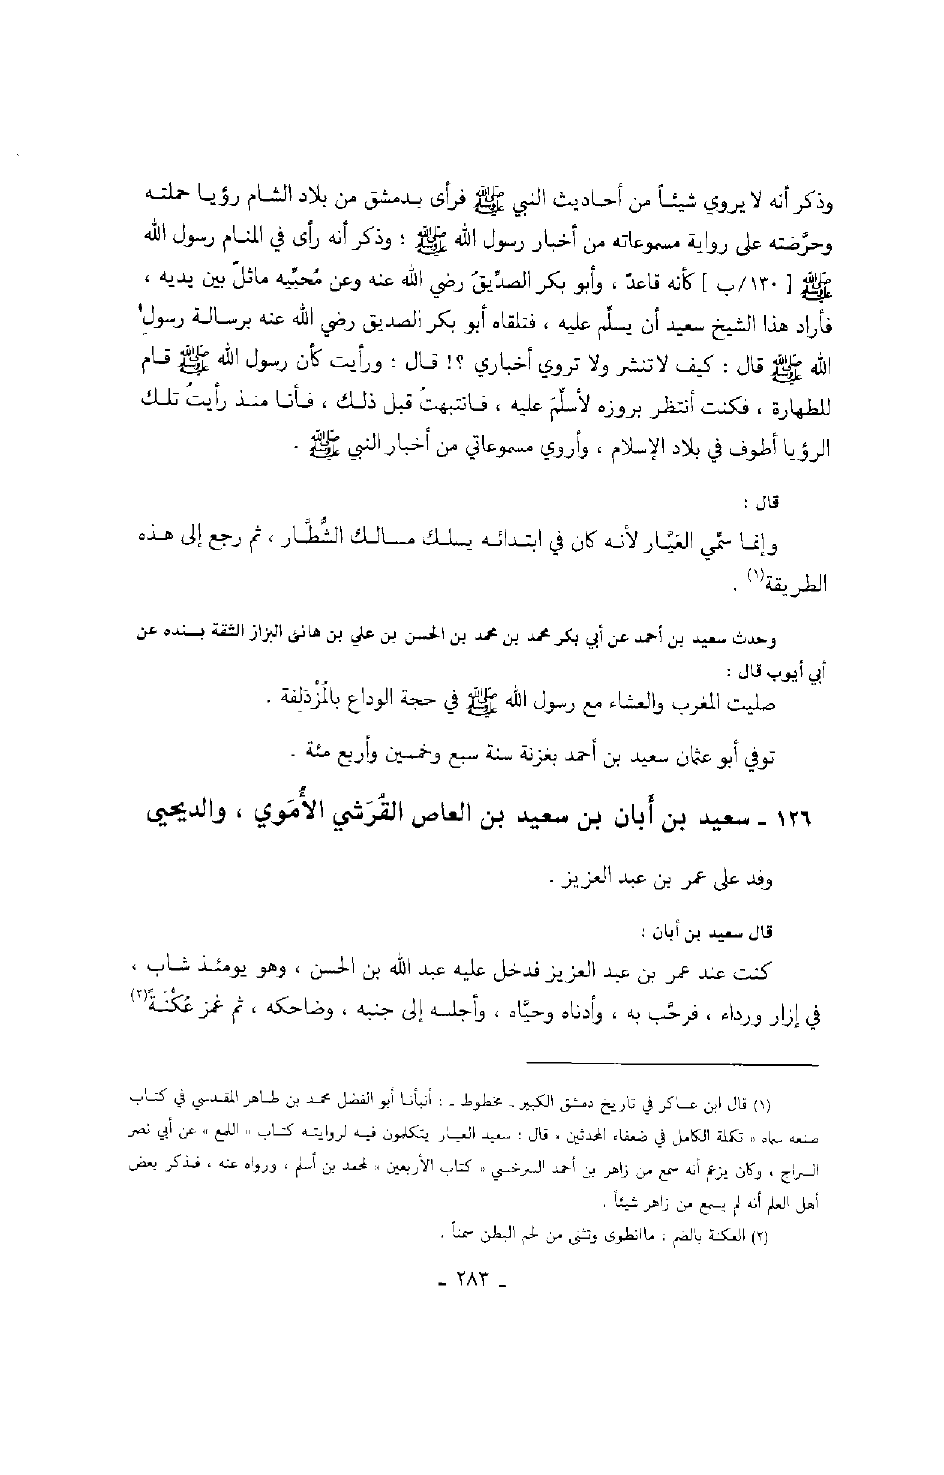 وذكر أنه لا يروي شيئاً من أحاديث النبي ﷺ فرأى بدمشق من بلاد الشام رؤيا حملته
وحرَّضته على رواية مسموعاته من أخبار رسول الله ﷺ ؛ وذكر أنه رأى في المنام رسول الله
ﷺ [ ١٣٠/ب ] كأنه قاعدٌ ، وأبو بكر الصدّيقُ رضي الله عنه وعن مُحبِّيه ماثلٌ بين يديه ،
فأراد هذا الشيخ سعيد أن يسلِّم عليه ، فتلقاه أبو بكر الصديق رضي الله عنه برسالة رسولِ
الله ﷺ قال : كيف لا تنشر ولا تروي أخباري ؟! قال : ورأيت كأن رسول الله ﷺ قام
للطهارة ، فكنت أنتظر بروزه لأسلِّمَ عليه ، فانتبهتُ قبل ذلك ، فأنا منذ رأيتُ تلك
الرؤيا أطوف في بلاد الإسلام ، وأروي مسموعاتي من أخبار النبي ﷺ .
قال :
وإنما سمِّي العَيَّار لأنه كان في ابتدائه يسلك مسالك الشُّطَّار ، ثم رجع إلى هذه
الطريقة(١) .
وحدث سعيد بن أحمد عن أبي بكر محمد بن محمد بن الحسن بن علي بن هانئ البزاز الثقة بسنده عن
أبي أيوب قال :
صليت المغرب والعشاء مع رسول الله ﷺ في حجة الوداع بالمُزْدَلِفة .
توفي أبو عثمان سعيد بن أحمد بغزنة سنة سبع وخمسين وأربع مئة .
١٢٦ - سعيد بن أَبان بن سعيد بن العاص القُرَشي الأُمَوي ، والد يحيى
وفد على عمر بن عبد العزيز .
قال سعيد بن أبان :
كنت عند عمر بن عبد العزيز فدخل عليه عبد الله بن الحسن ، وهو يومئذ شاب ،
في إزار ورداء ، فرحَّب به ، وأدناه وحيَّاه ، وأجلسه إلى جنبه ، وضاحكه ، ثم غمز عُكْنَةً(٢)
(١) قال ابن عساكر في تاريخ دمشق الكبير - مخطوط - : أنبأنا أبو الفضل محمد بن طاهر المقدسي في كتاب
صنعه سماه « تكملة الكامل في ضعفاء المحدثين » قال : سعيد العيار يتكلمون فيه لروايته كتاب « اللمع » عن أبي نصر
السراج ، وكان يزعم أنه سمع من زاهر بن أحمد السرخسي « كتاب الأربعين » لمحمد بن أسلم ، ورواه عنه ، فذكر بعض
أهل العلم أنه لم يسمع من زاهر شيئاً .
(٢) العكنة بالضم : ما انطوى وتثنى من لحم البطن سمناً .
- ٢٨٣ -